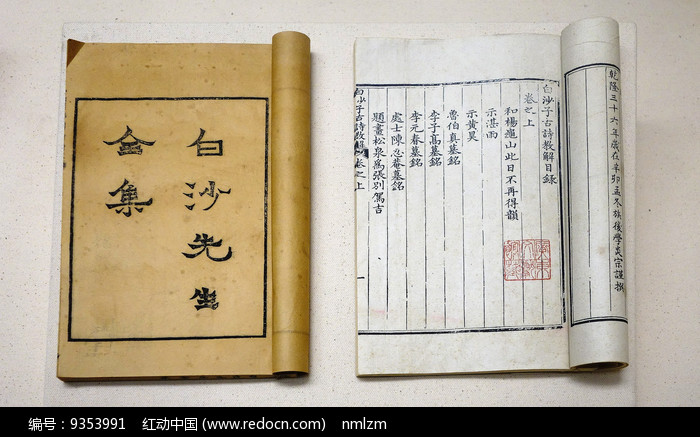 白沙先生
全集
乾隆三十六年歲在辛卯孟冬族後學炎宗謹撰
白沙子古詩教解目錄
卷之上
和楊龜山此日不再得韻
示湛雨
示黃昊
魯伯真墓銘
李子高墓銘
李元春墓銘
處士陳忍菴墓銘
題畫松泉為張別駕吉
白沙子古詩教解
卷之上
编号：9353991 红动中国 (www.redocn.com) nmlzm